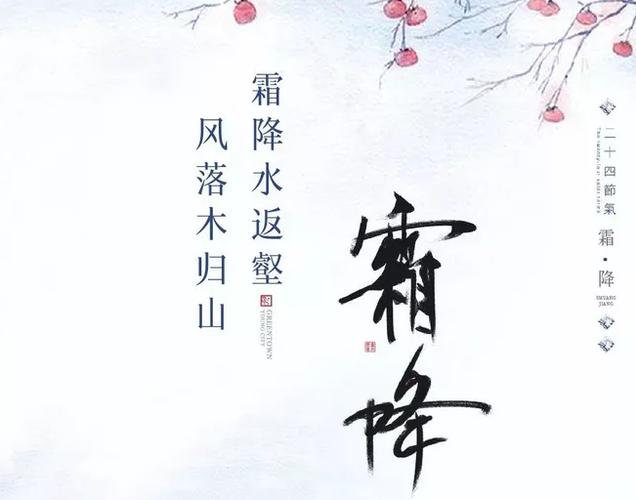 二十四節氣
霜·降
SHUANG
JIANG
霜降水返壑
风落木归山
GREENTOWN
YOUNG CITY
霜降